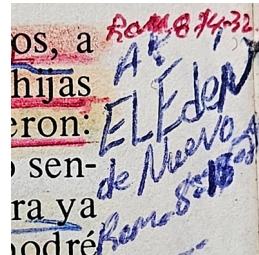 os, a
hijas
eron:
o sen-
ra ya
podré
Rom. 8:14-32
EL Eden
de Nuevo
Rom. 8:18